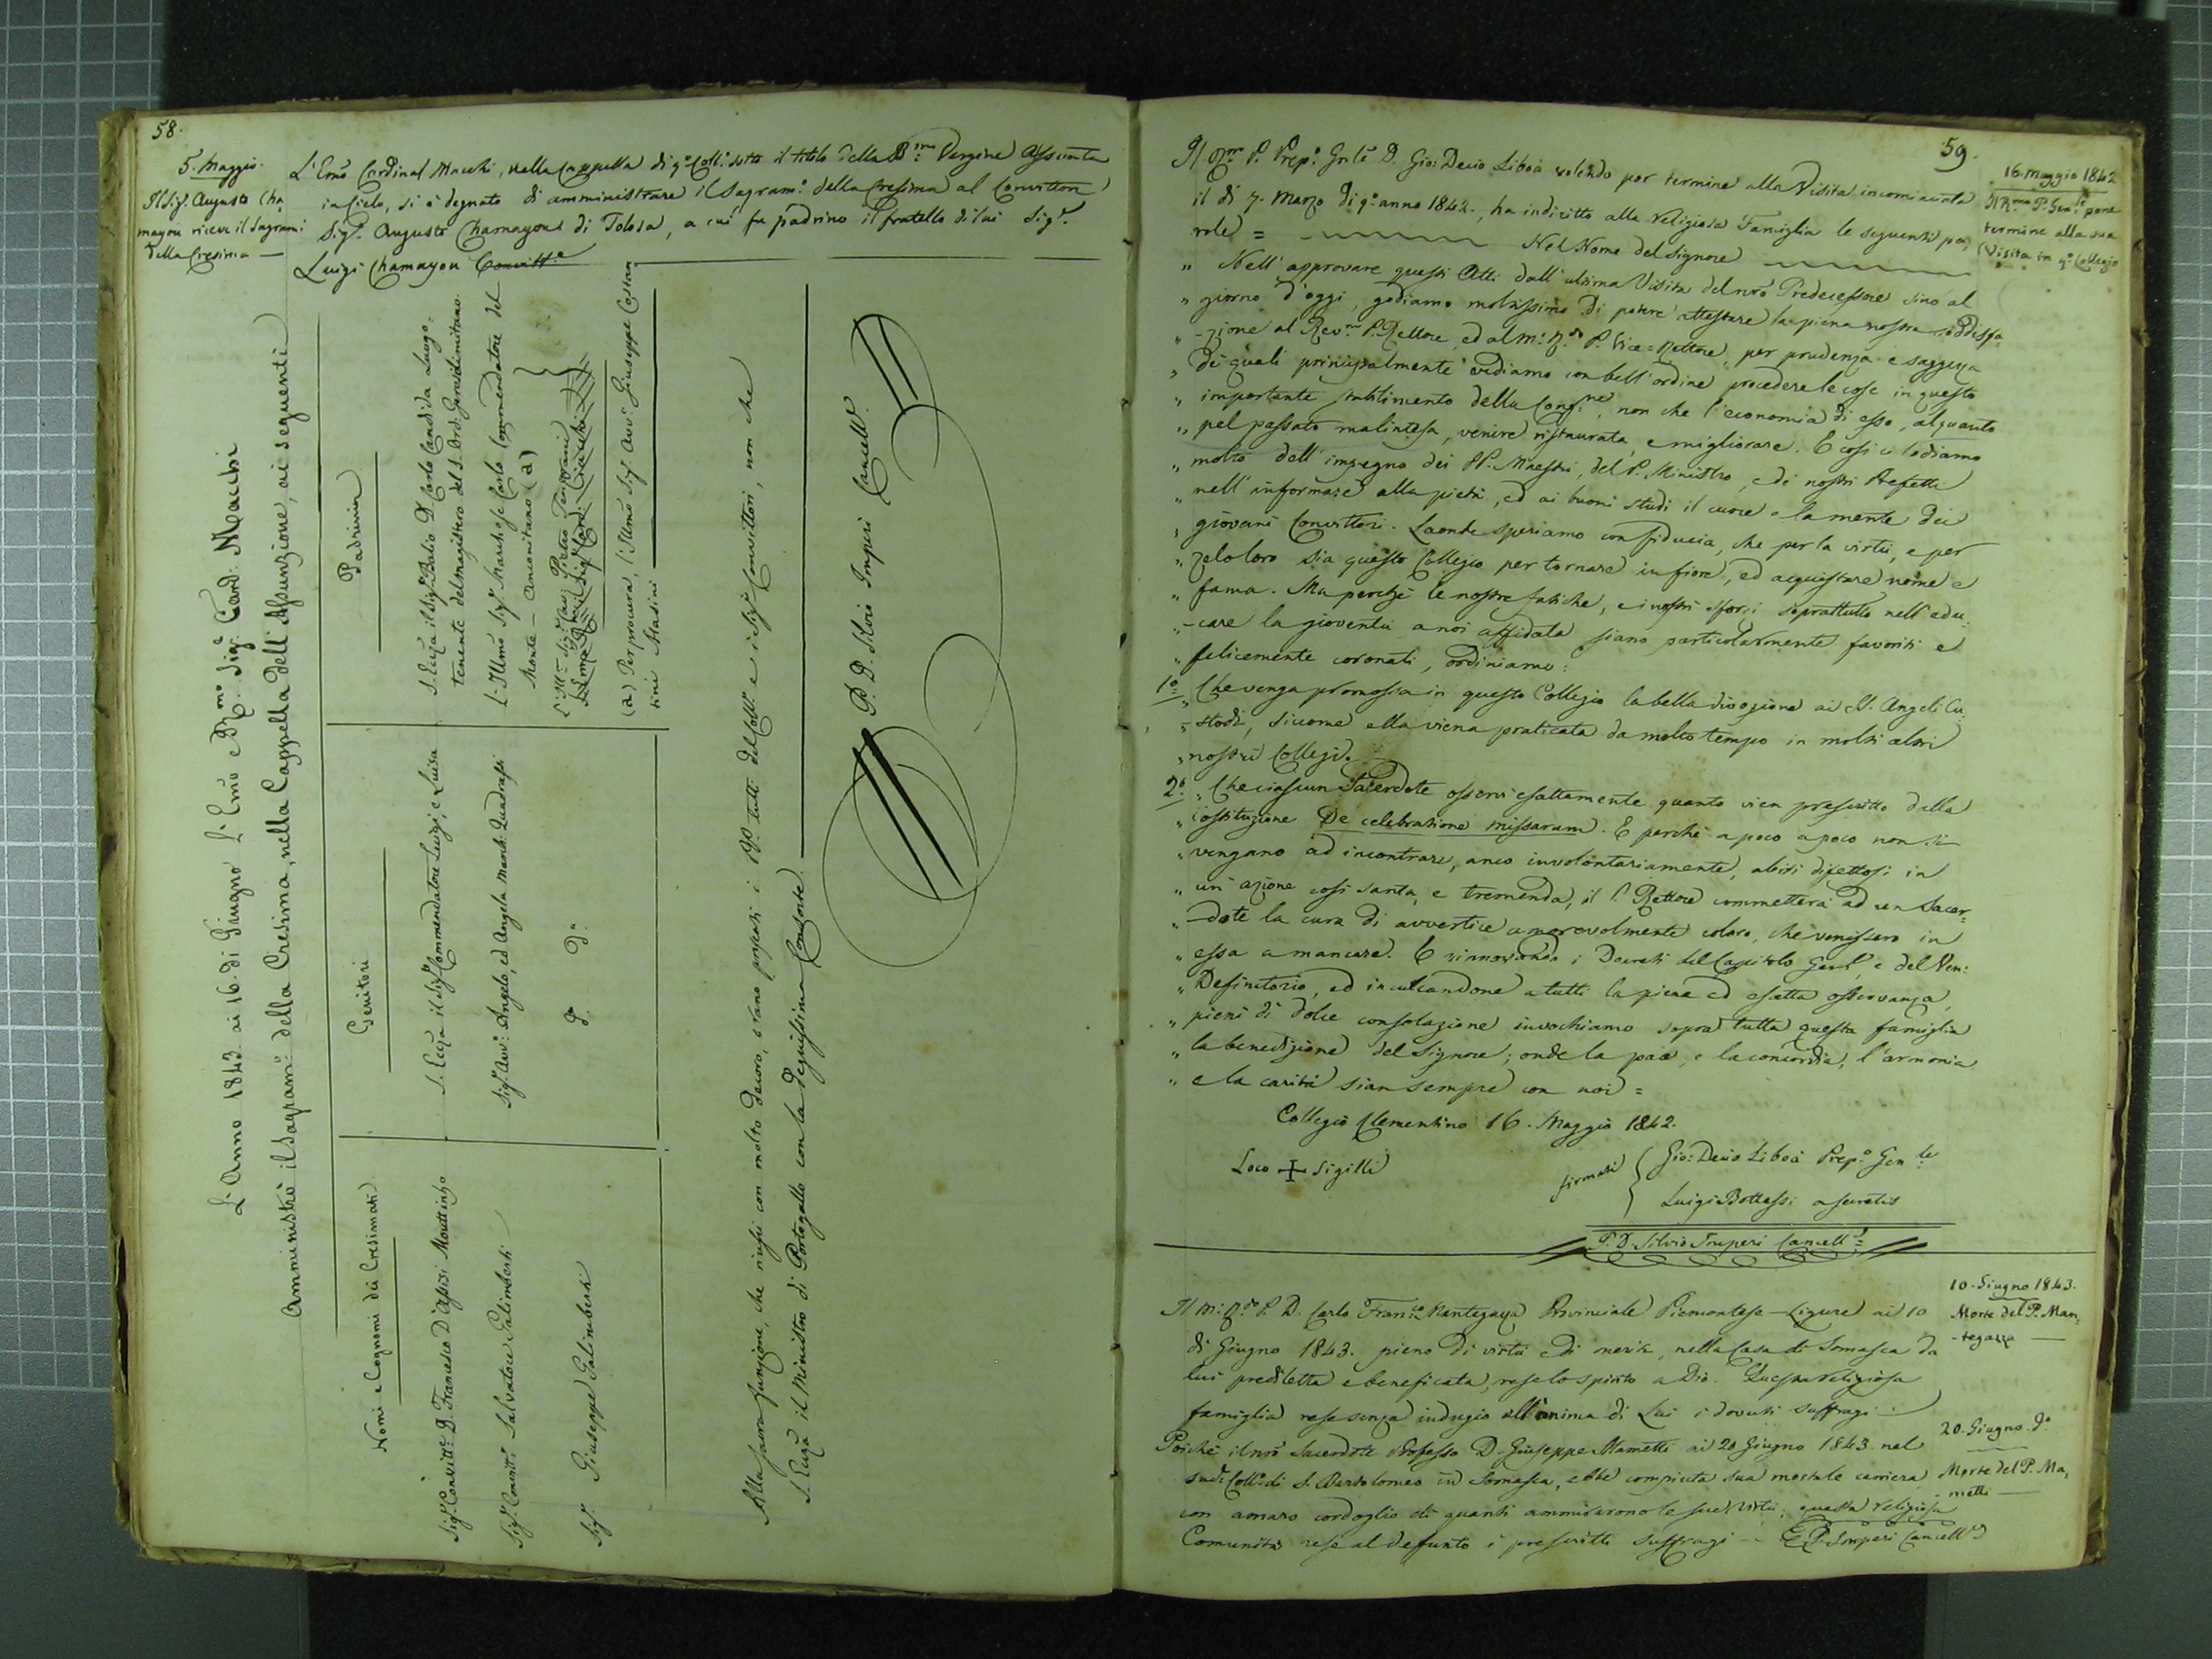 58.
5. Maggio.
Il Sig.r Augusto Cha
mayou riceve il Sagram:
della Cresima —
L'Emo Cardinal Macchi, nella Cappella di q.o Coll.o sotto il titolo della B.ma Vergine Assunta
in Cielo, si è degnato di amministrare il Sagram.o della Cresima al Convittore
Sig.r Augusto Chamayou di Tolosa, a cui fu padrino il fratello di lui Sig.r
Luigi Chamayou Convitt.e
L'Anno 1843. ai 16. di Giugno L'Emo e Rmo Sig.r Card: Macchi
Amministrò il Sagram.o della Cresima, nella Cappella dell'Assunzione, ai seguenti
Nomi e Cognomi dei Cresimati
Genitori
Padrini
Sig.r Convitt.e D. Francesco D'Apizi Mouttinho
S. Ecc̃a il Sig.r Commendatore Luigi, e Luisa
S. Ecc̃a il Sig.r Balio D. Carlo Candida Luogo-
tenente del magistero del S. Ord. Gerosolimitano.
Sig.r Convitt.e Salvatore Palimberti
Sig.r Avv.o Angelo, ed Angela March. Quadrassi
L'Illmo Sig.r Marchese Carlo Commendatore del
Monte — Anconitano (a)
Sig.r Giuseppe Palimberti
d.o d.o
(a) Per procura, l'Illmo Sig. Avv.o Giuseppe Costan
tini Masini
Alla sacra funzione, che riuscì con molto decoro, erano presenti i PP. tutti del Coll.o e i Sig.ri Convittori, non che
S. Ecc̃a il Ministro di Portogallo con la degnissima Consorte.
P. D. Silvio Imperi Cancell.e
59.
16. Maggio 1842
Il R.mo P. Gen.le pone
termine alla sua
Visita in q.o Collegio
Il R.mo P. Prep.o Gñle D. Gio: Decio Libois volendo por termine alla Visita incominciata
il dì 7. Marzo di q.o anno 1842., ha indiritto alla Religiosa Famiglia le seguenti pa-
role = Nel Nome del Signore
„ Nell'approvare questi Atti dall'ultima Visita del nro Predecessore sino al
„ giorno d'oggi, godiamo moltissimo di potere attestare la piena nostra soddisfa-
„ -zione al Rev.mo P. Rettore, ed al m.o R.do P. Vice=Rettore, per prudenza e saggezza
„ de' quali principalmente vediamo con bell'ordine procedere le cose in questo
„ importante stabilimento della Cong.ne, non che l'economia di esso, alquanto
„ pel passato malintesa, venire ristaurata, e migliorare. E così ci lodiamo
„ molto dell'impegno dei PP. Maestri, del P. Ministro, e di nostri Prefetti
„ nell'informare alla pietà, ed ai buoni studi il cuore e la mente dei
„ giovani Convittori. Laonde speriamo con fiducia, che per la virtù, e per
„ zelo loro sia questo Collegio per tornare in fiore, ed acquistare nome e
„ fama. Ma perchè le nostre fatiche, e i nostri sforzi soprattutto nell'edu-
„ -care la gioventù a noi affidata siano particolarmente favoriti e
„ felicemente coronati, ordiniamo:
1.o „ Che venga promossa in questo Collegio la bella divozione ai SS. Angeli Cu-
„ -stodi, siccome ella viene praticata da molto tempo in molti altri
„ nostri Collegi.
2.o „ Che ciascun Sacerdote osservi esattamente quanto vien prescritto dalla
„ costituzione De celebratione missarum. E perchè a poco a poco non si
„ vengano ad incontrare, anco involontariamente, abiti difettosi in
„ un'azione così santa, e tremenda, il P. Rettore commetterà ad un Sacer-
„ -dote la cura di avvertire amorevolmente coloro, che venissero in
„ essa a mancare. E rinnovando i Decreti del Capitolo Gen.le, e del Ven:
„ Definitorio, ed inculcandone a tutti la piena ed esatta osservanza,
„ pieni di dolce consolazione invochiamo sopra tutta questa famiglia
„ la benedizione del Signore; onde la pace, e la concordia, l'armonia
„ e la carità sian sempre con noi =
Collegio Clementino 16. Maggio 1842.
Loco + Sigilli
firmati
Gio: Decio Libois Prep.o Gen.le
Luigi Bottessi a secretis
P. D. Silvio Imperi Cancell.e
10. Giugno 1843.
Morte del P. Man-
-tegazza —
Il M.o R.do P. D. Carlo Fran.co Mantegazza Provinciale Piemontese-Ligure ai 10
di Giugno 1843. pieno di virtù e di meriti, nella Casa di Somasca da
lui prediletta e beneficata, rese lo spirito a Dio. Questa religiosa
famiglia rese senza indugio all'anima di Lui i dovuti suffragi —
20. Giugno d.o
Morte del P. Ma-
metti —
Poichè il nro Sacerdote Professo D. Giuseppe Mametti ai 20 Giugno 1843. nel
sud.o Coll.o di S. Bartolomeo in Somasca, ebbe compiuta sua mortale carriera
con amaro cordoglio di quanti ammirarono le sue virtù, questa religiosa
Comunità rese al defunto i prescritti suffragi — P. D. Imperi Cancell.e